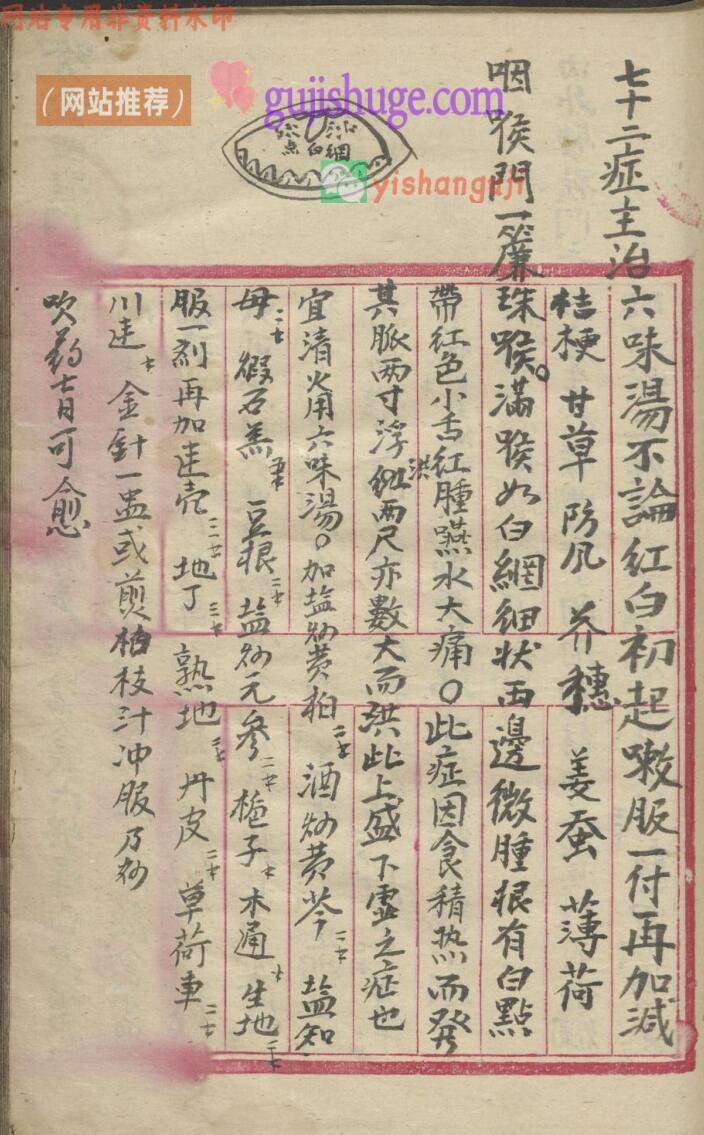 网站专用非资料水印
(网站推荐)
gujishuge.com
yishanguji
点 白 網
七十二症主治六味湯不論紅白初起嗽服一付再加減
桔梗 甘草 防风 芥穗 姜蚕 薄荷
咽喉門一簾珠喉。滿喉如白網細状两邊微腫根有白點
帶紅色小舌紅腫嚥水大痛。此症因食積热而發
其脈两寸浮洪两尺亦數大而洪此上盛下虛之症也
宜清火用六味湯。加盐炒黄柏二钱 酒炒黄芩二钱 盐知
母二钱 煅石羔 豆根二钱 盐炒元參二钱 梔子钱 木通钱 生地二钱
服一剂再加連壳二钱 地丁三钱 熟地三钱 丹皮二钱 草荷車二钱
川連钱 金針一盅或煎柏枝汁冲服乃炒
吹药七日可愈